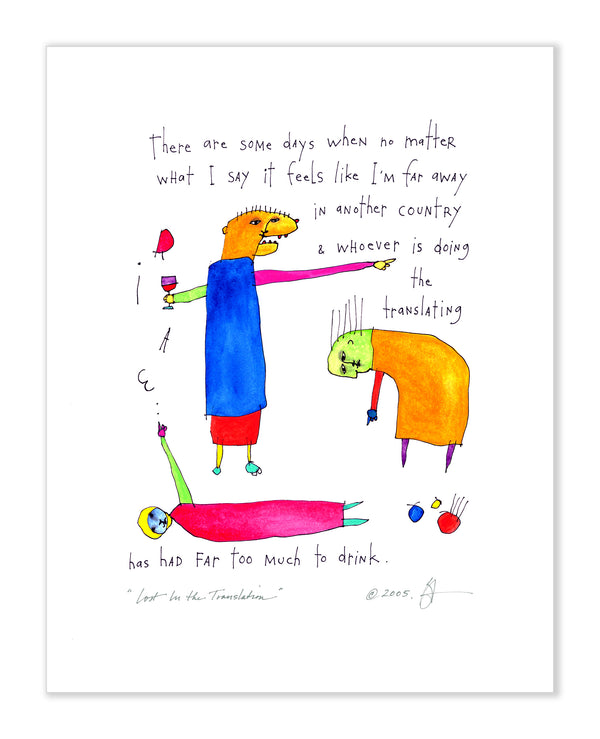 there are some days when no matter
what I say it feels like I'm far away
in another country
& whoever is doing
the
translating
has had far too much to drink.
"Lost In the Translation"
© 2005.